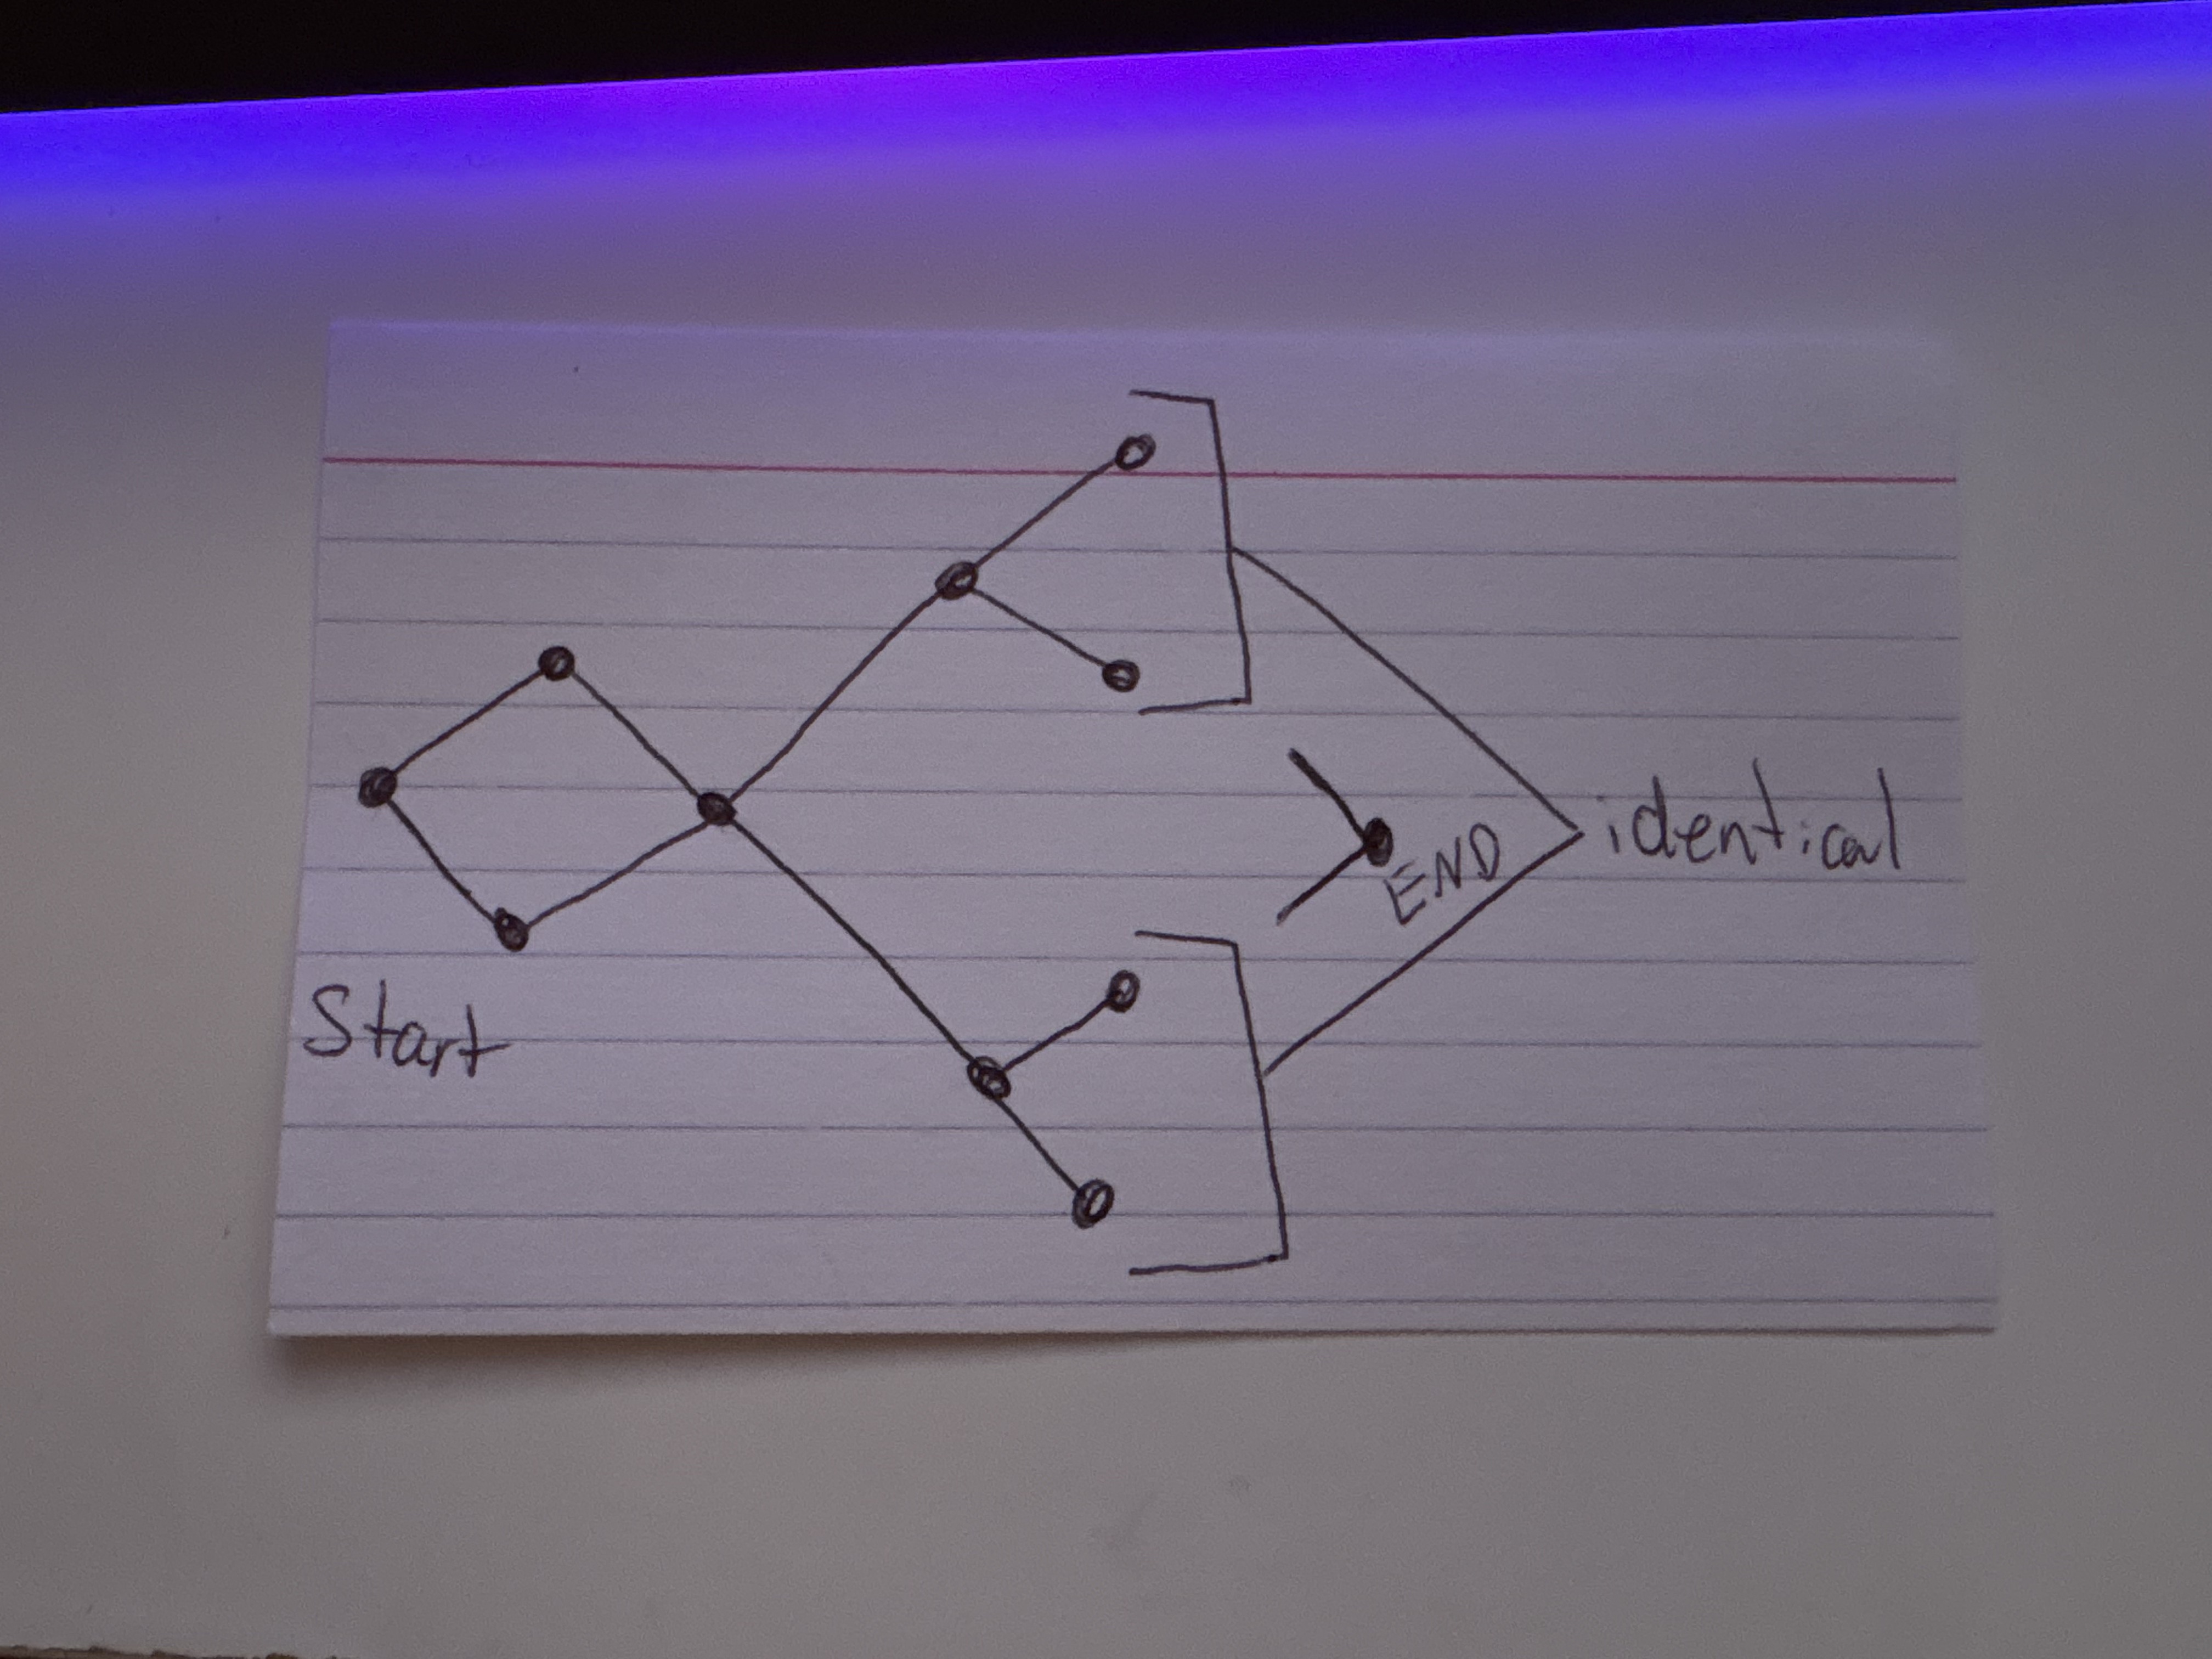 Start
END
identical